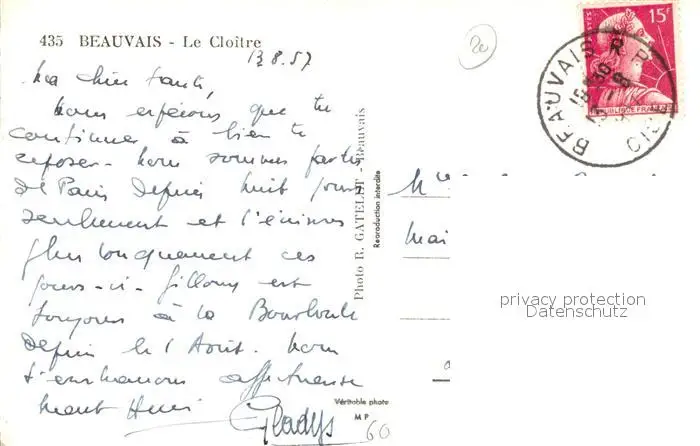 435 BEAUVAIS - Le Cloître
13.8.57
Ma chère Tante,
Nous espérons que tu
continues à bien te
reposer - Nous sommes partis
de Paris depuis huit jours
seulement et t'écrirons
plus longuement ces
jours-ci. Gillony est
toujours à la Bourboule
depuis le 1 Août. Nous
t'embrassons affectueuse
ment Henri Gladys
Photo R. GATELET - Beauvais
Reproduction interdite
Véritable photo
M P
60
20
15F
POSTES
REPUBLIQUE FRANÇAISE
BEAUVAIS R.P.
OISE
M
Mai
privacy protection
Datenschutz